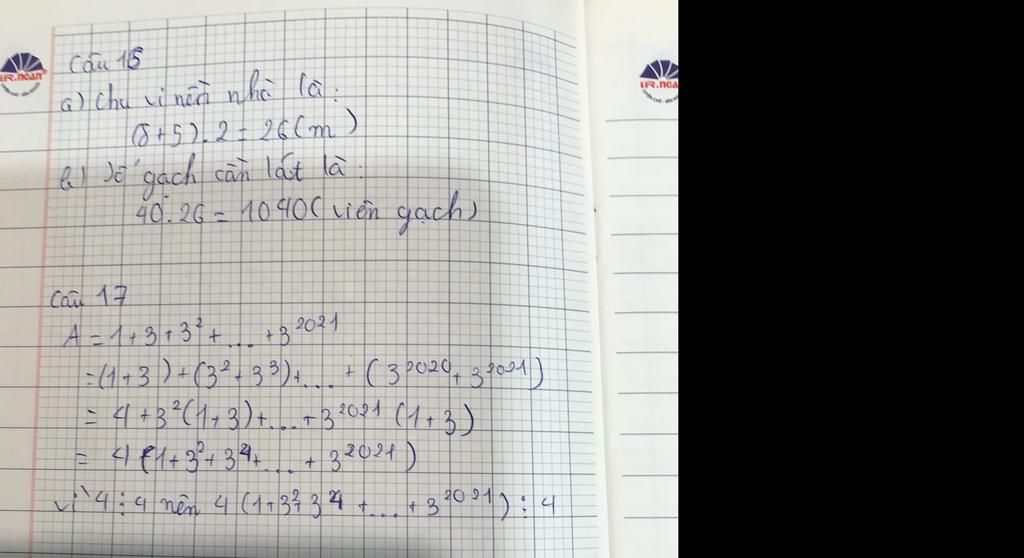 Câu 15
a) Chu vi nền nhà là:
(8+5).2=26(m)
b) Số gạch cần lát là:
40.26=1040(viên gạch)
Câu 17
A=1+3+3²+....+3²⁰²¹
=(1+3)+(3²+3³)+....+(3²⁰²⁰+3²⁰²¹)
=4+3²(1+3)+....+3²⁰²¹(1+3)
=4(1+3²+3⁴+....+3²⁰²¹)
Vì 4⋮4 nên 4(1+3²+3⁴+...+3²⁰²¹)⋮4